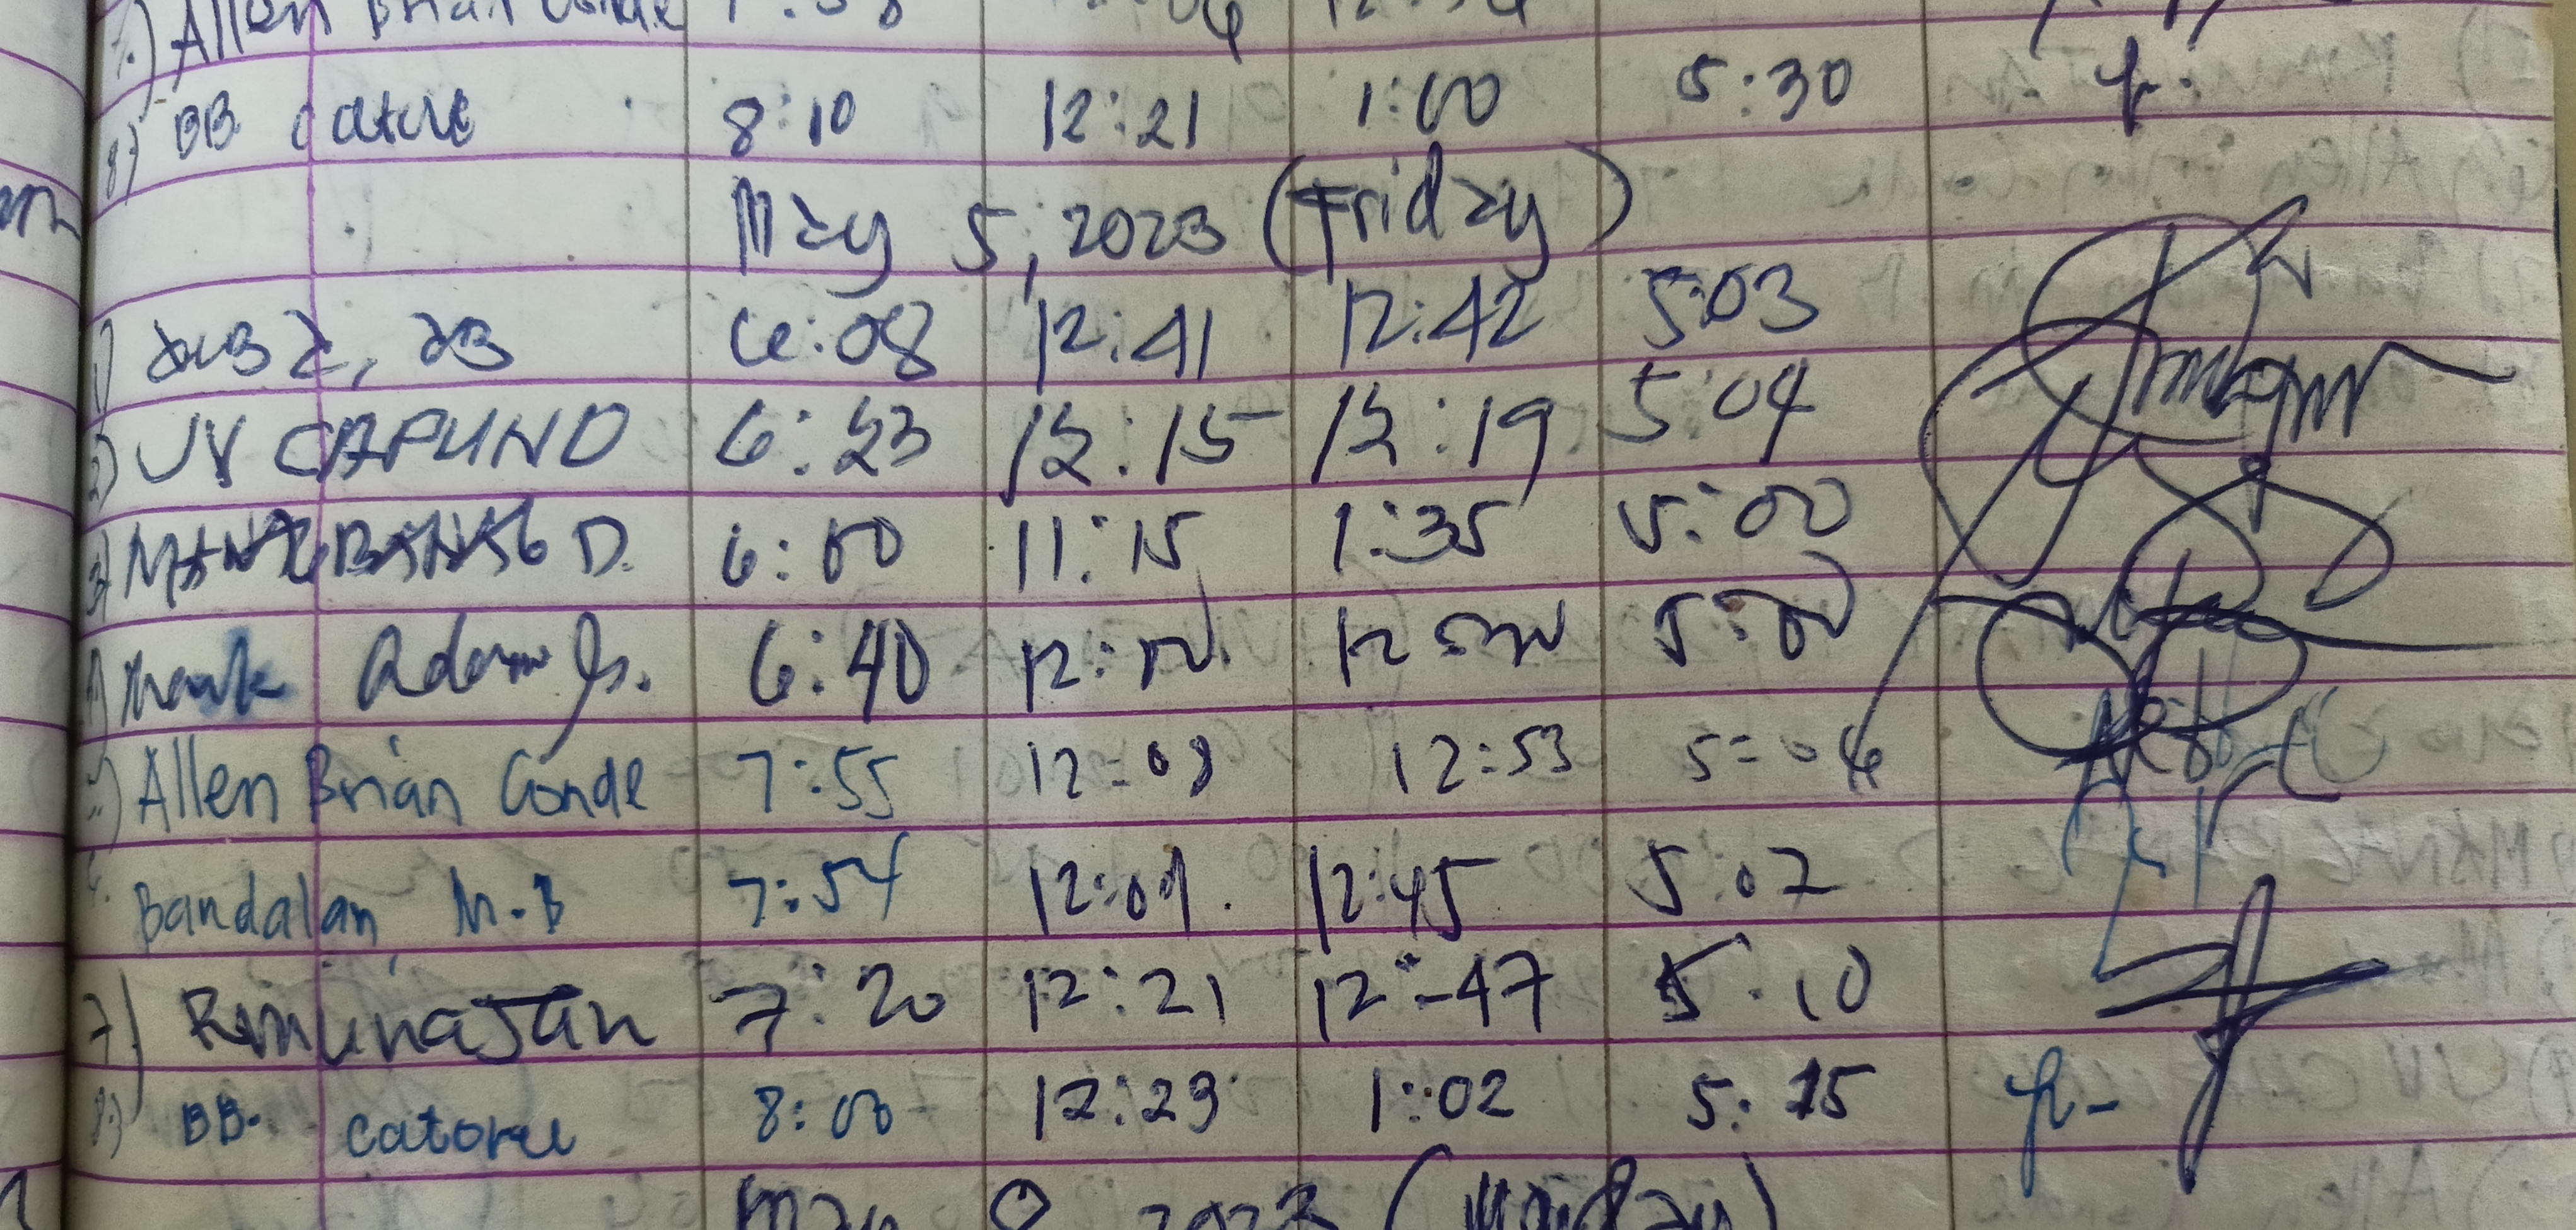 Allen Brian Conde
8) BB catore 8:10 12:21 1:00 5:30
May 5, 2023 (Friday)
1) 6:08 12:41 12:42 5:03
2) UV CAPUNO 6:23 12:15 12:19 5:04
3) D. 6:00 11:15 1:35 5:00
Mark Adorn Jr. 6:40 12:
5) Allen Brian Conde 7:55 12:09 12:53 5:06
Bandalan M.B 7:54 12:09. 12:45 5:07
7) Remunajan 7:20 12:21 12:47 5:10
8) BB. catore 8:00 12:29 1:02 5:15
May 8 2023 (Monday)